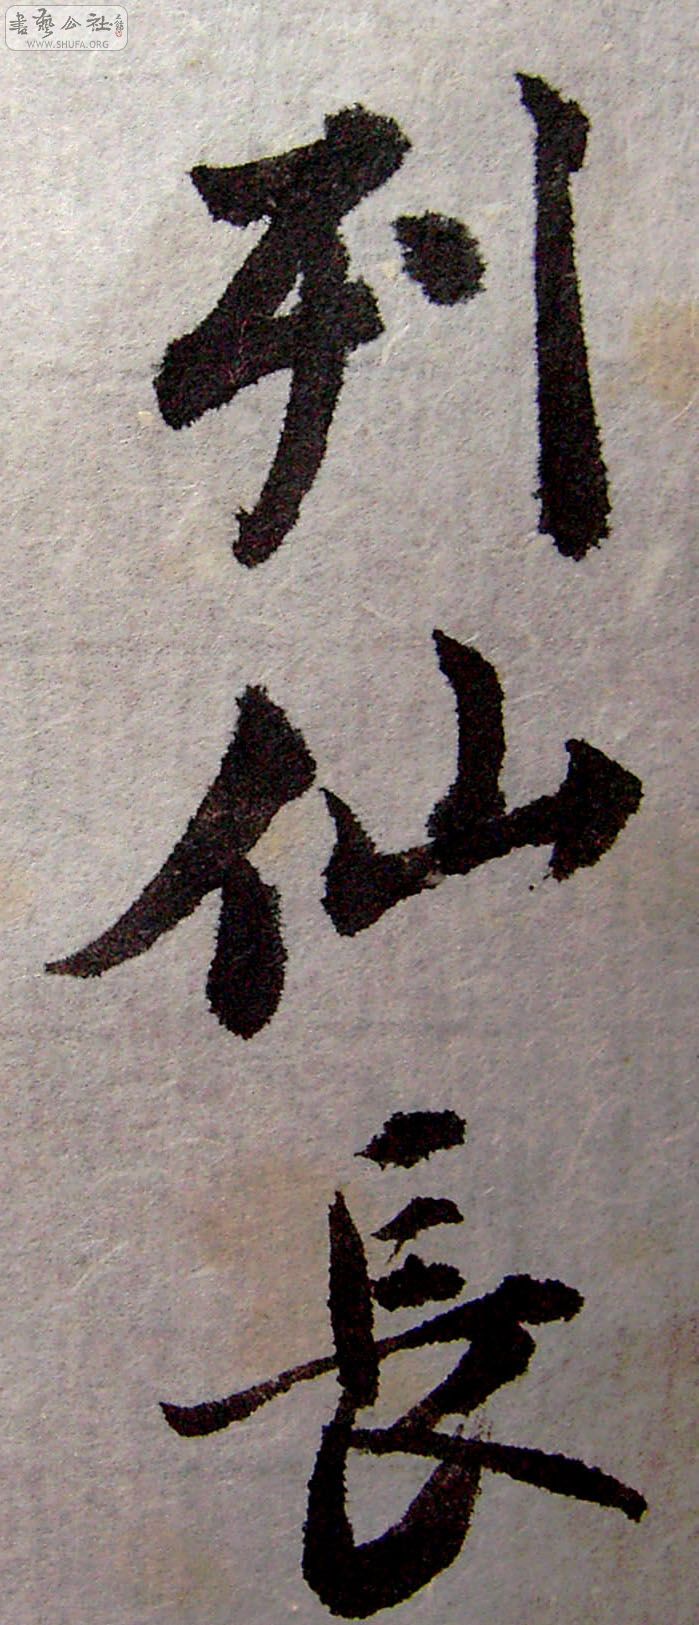 書藝公社
WWW.SHUFA.ORG
列仙長